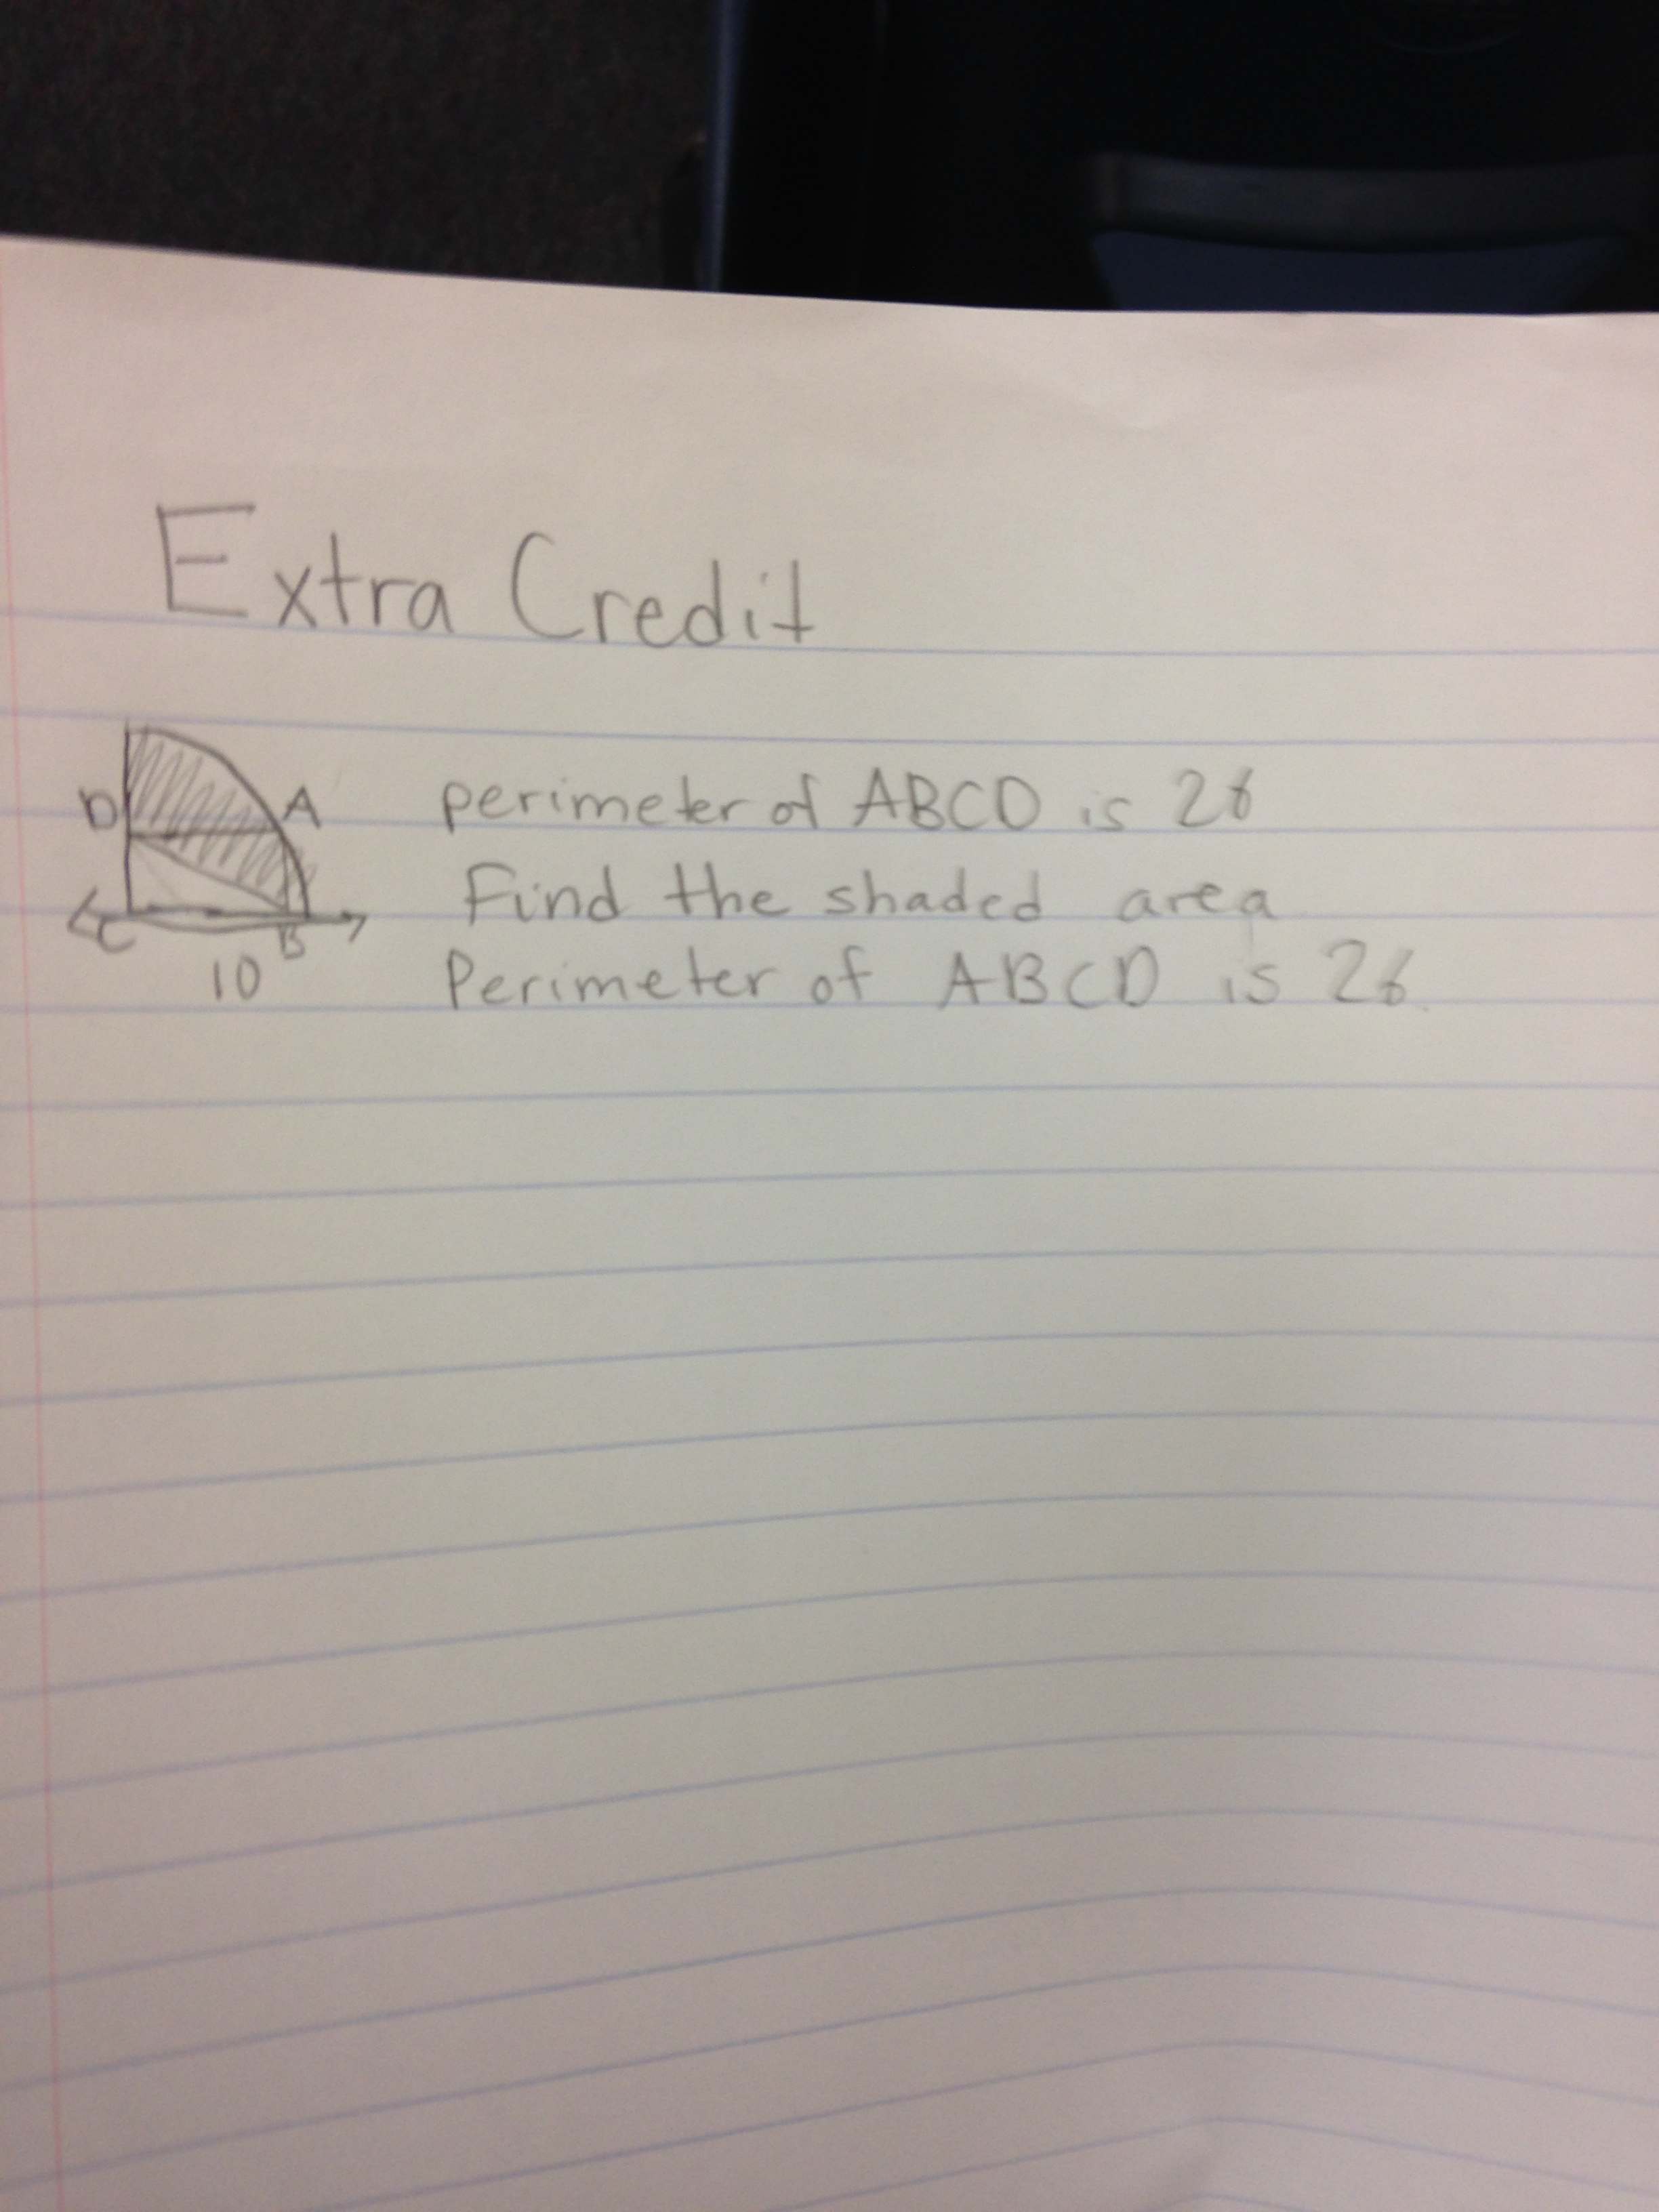 Extra Credit
D A perimeter of ABCD is 26
Find the shaded area
C B
10 Perimeter of ABCD is 26